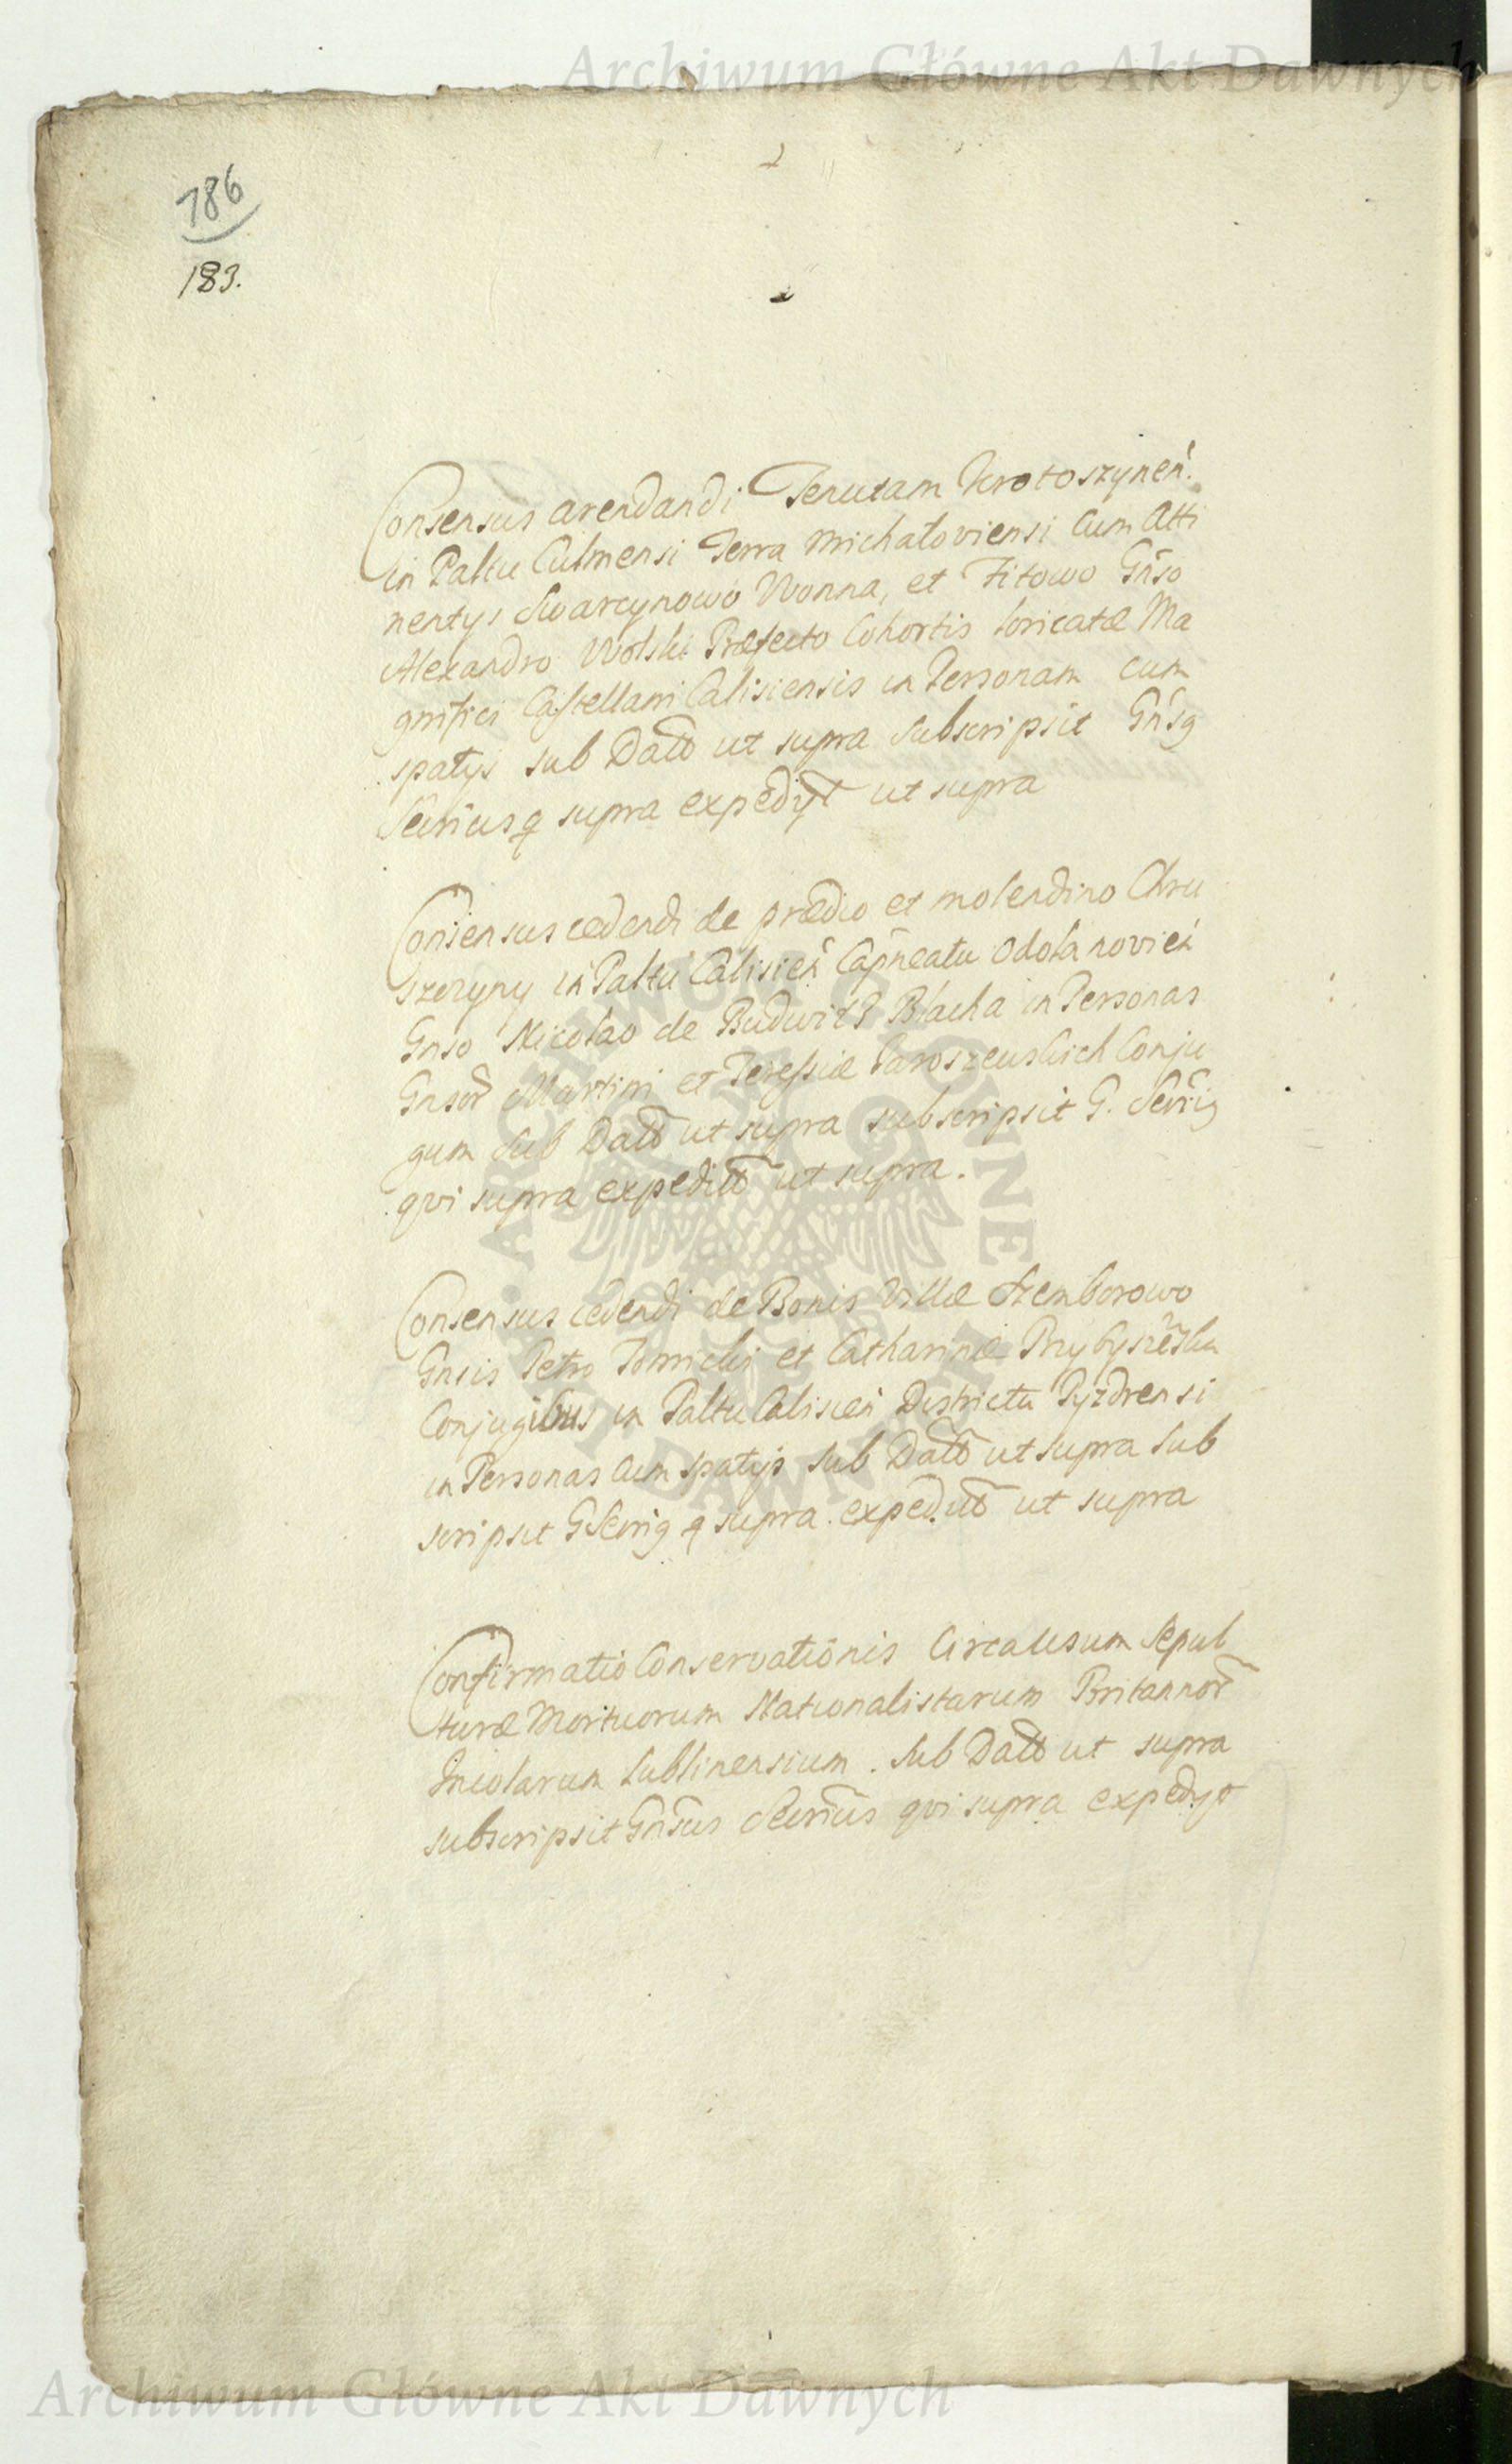 Archiwum Główne Akt Dawnych
186
183.
Consensus arendandi Tenutam Krotoszyneń.
in Paltu Culmensi Terra Michałoviensi Cum Atti
nentys Swarcynowo Wonna, et Fitowo Gn̄so
Alexandro Wolski Præfecto Cohortis loricatæ Ma
gnifici Castellani Calisiensis in Personam cum
spatys sub Datt̄ ut supra Subscripsit Gn̄sg
Secriusq supra expedyt ut supra
Consensus cedendi de prædio et molendino Chru
szczyny in Paltu Calisień Capneatu Odolanovień
Gnso Nicolao de Budwitz Blacha in Personas
Gnsor̄ Martini et Teressiæ Jaroszewskich Conju
gum Sub Datt̄ ut supra subscripsit G. Secrig
qvi supra expeditt̄ ut supra.
Consensus cedendi de Bonis Villæ Szemborowo
Gnsis Petro Tomicki et Catharinæ Przybyszewska
Conjugibus in Paltu Calisień Districtu Pyzdrensi
in Personas cum spatys sub Datt̄ ut supra Sub
scripsit GSecrig q supra expeditt̄ ut supra
Confirmatio Conservationis Circa usum Sepul
turæ Mortuorum Nationalistarum Britannor̄
Incolarum Lublinensium. Sub Datt̄ ut supra
subscripsit Gn̄sus Secrius qvi supra expedyt
ARCHIWUM GŁÓWNE AKT DAWNYCH
Archiwum Główne Akt Dawnych